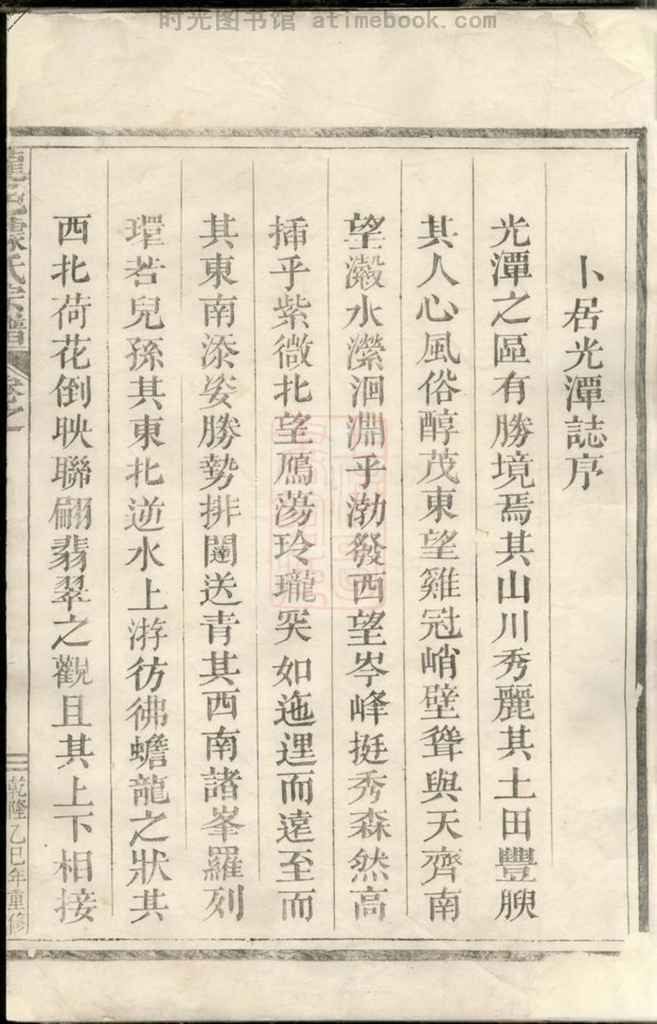 时光图书馆 atimebook.com
卜居光潭誌序
光潭之區有勝境焉其山川秀麗其土田豐腴
其人心風俗醇茂東望雞冠峭壁聳與天齊南
望瀫水瀠洄淵乎渤發西望岑峰挺秀森然高
揷乎紫微北望鴈蕩玲瓏突如迤逕而遠至而
其東南添姿勝勢排闥送青其西南諸峯羅列
環若兒孫其東北逆水上游彷彿蟾龍之狀其
西北荷花倒映聯翩翡翠之觀且其上下相接
氏宗譜 卷之一
乾隆乙巳年重修